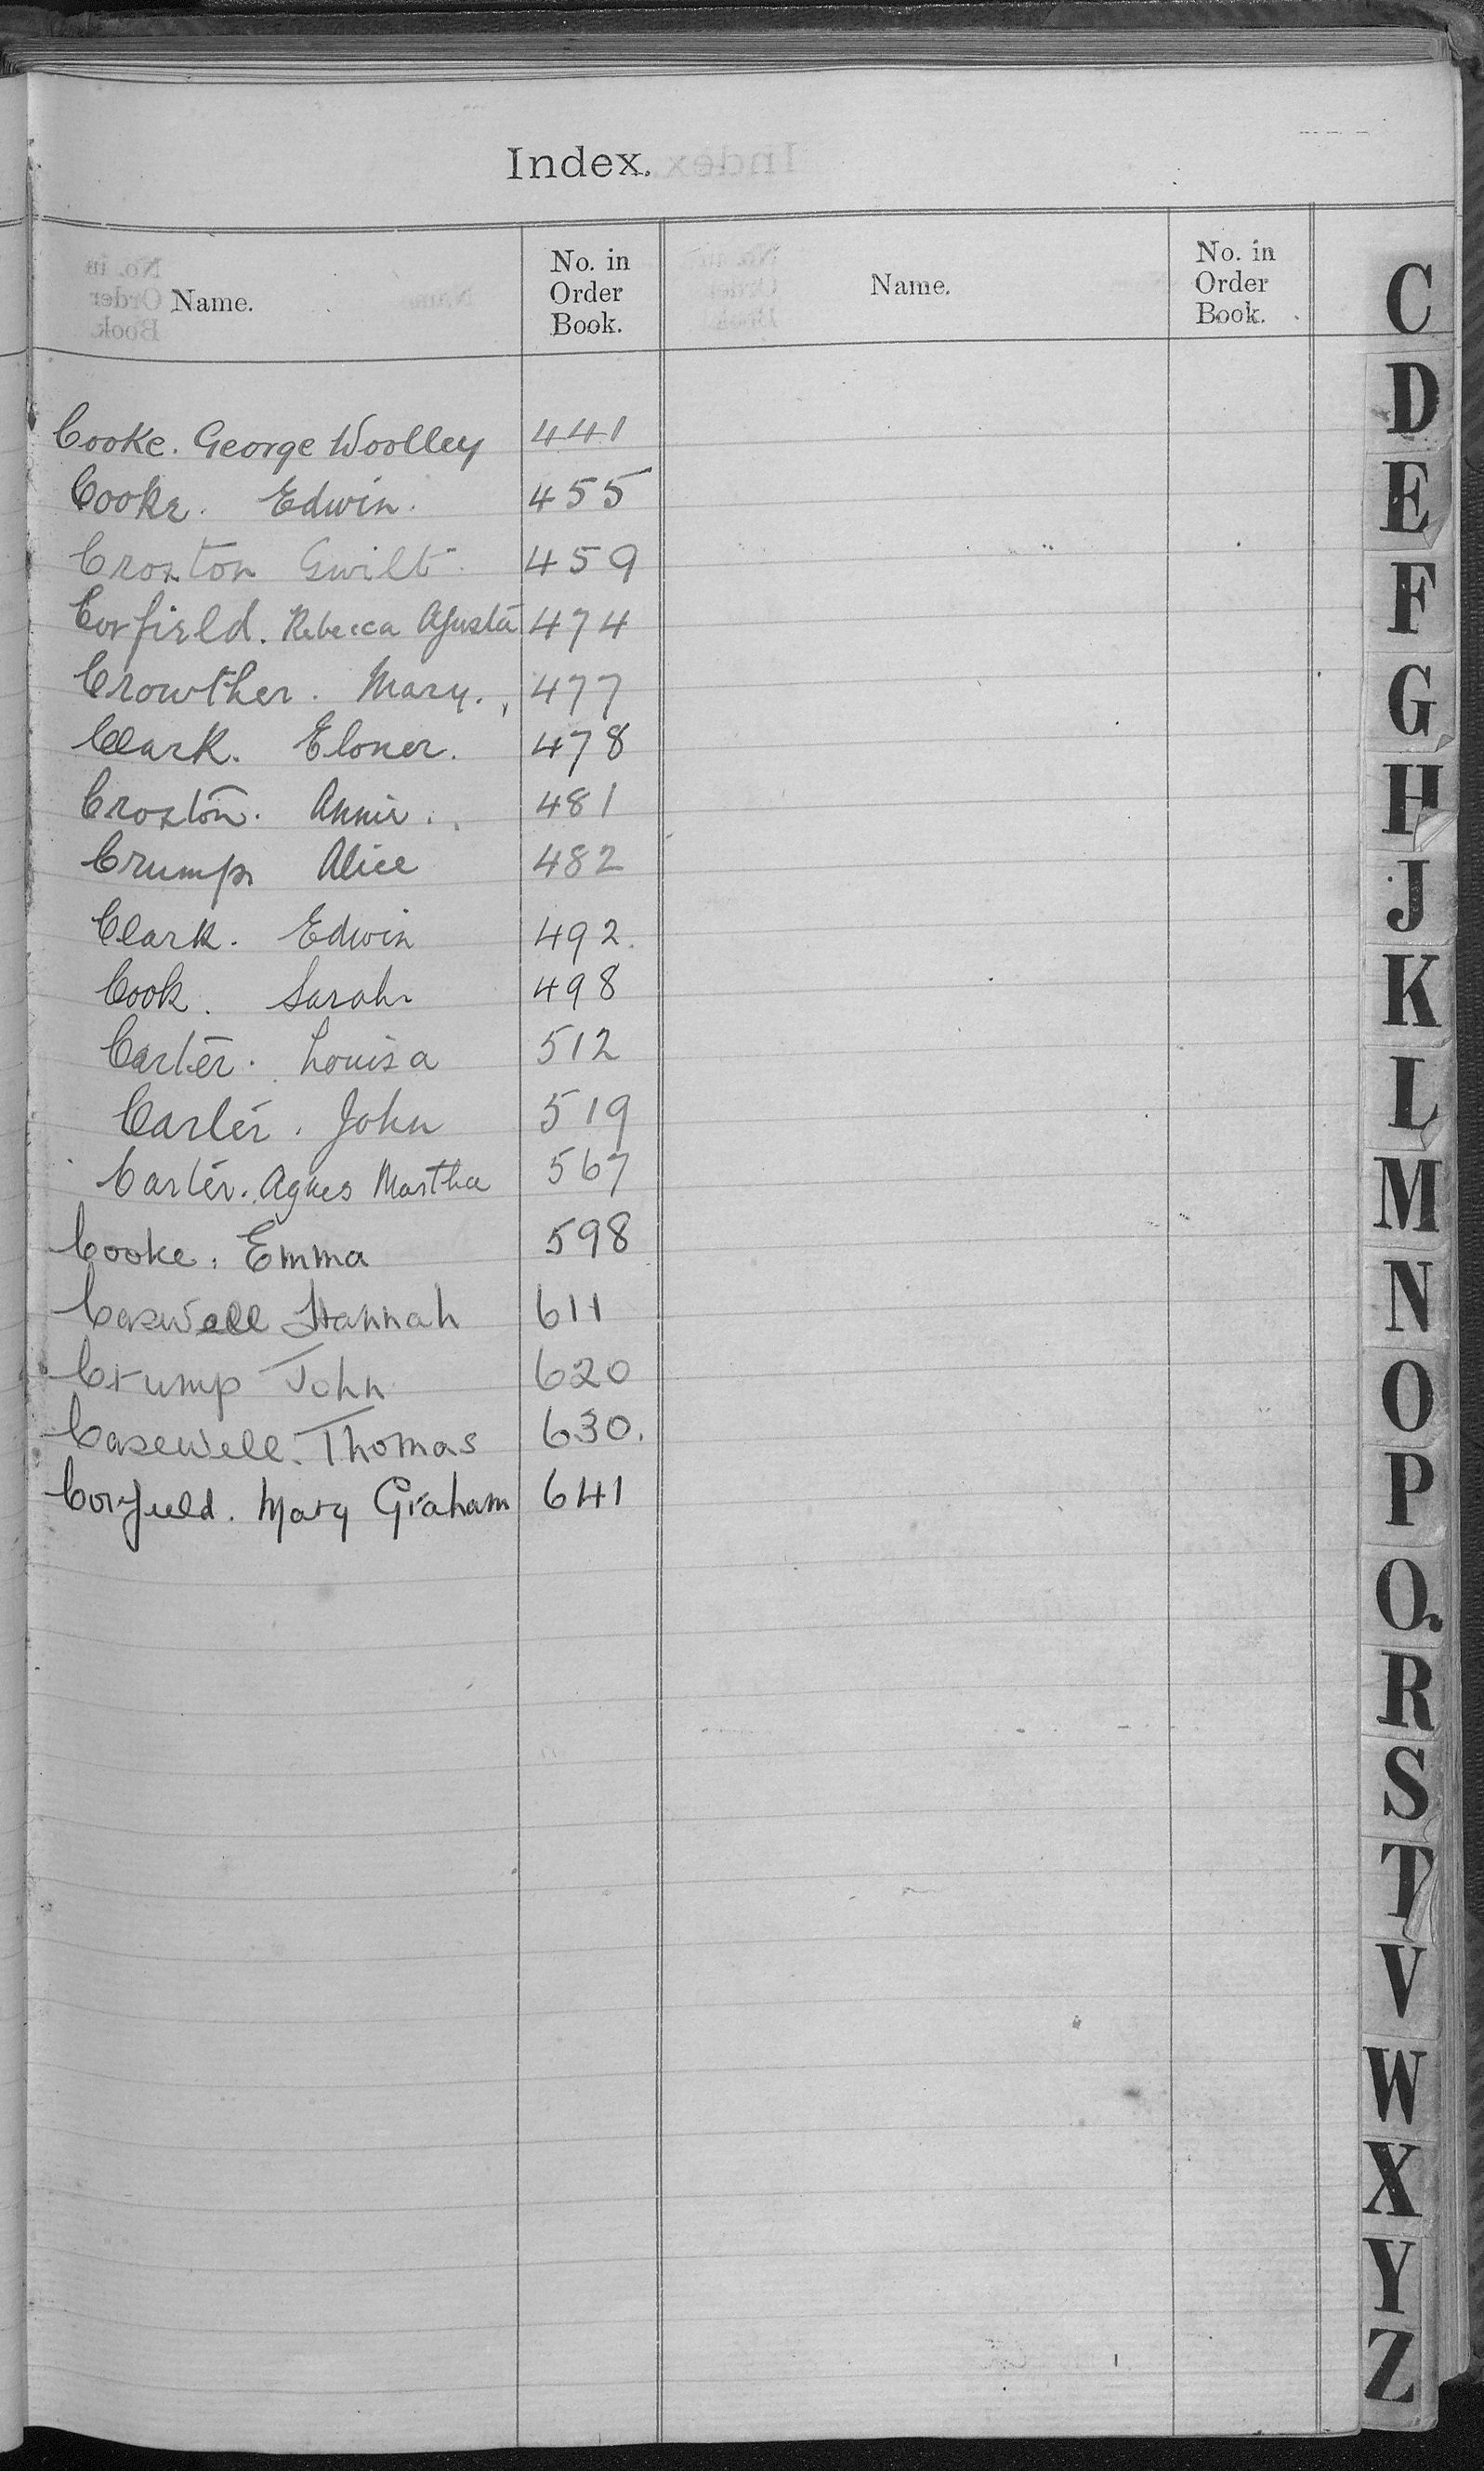 Index.
Name.
No. in
Order
Book.
Name.
No. in
Order
Book.
Cooke. George Woolley 441
Cooke. Edwin. 455
Croxton Gwilt 459
Corfield. Rebecca Agusta 474
Crowther. Mary. 477
Clark. Eloner. 478
Croxton. Annie. 481
Crump Alice 482
Clark. Edwin 492.
Cook. Sarah 498
Carter. Louisa 512
Carter. John 519
Carter. Agnes Martha 567
Cooke. Emma 598
Caswell Hannah 611
Crump John 620
Casewell. Thomas 630.
Corfield. Mary Graham 641
C
D
E
F
G
H
J
K
L
M
N
O
P
Q
R
S
T
V
W
X
Y
Z